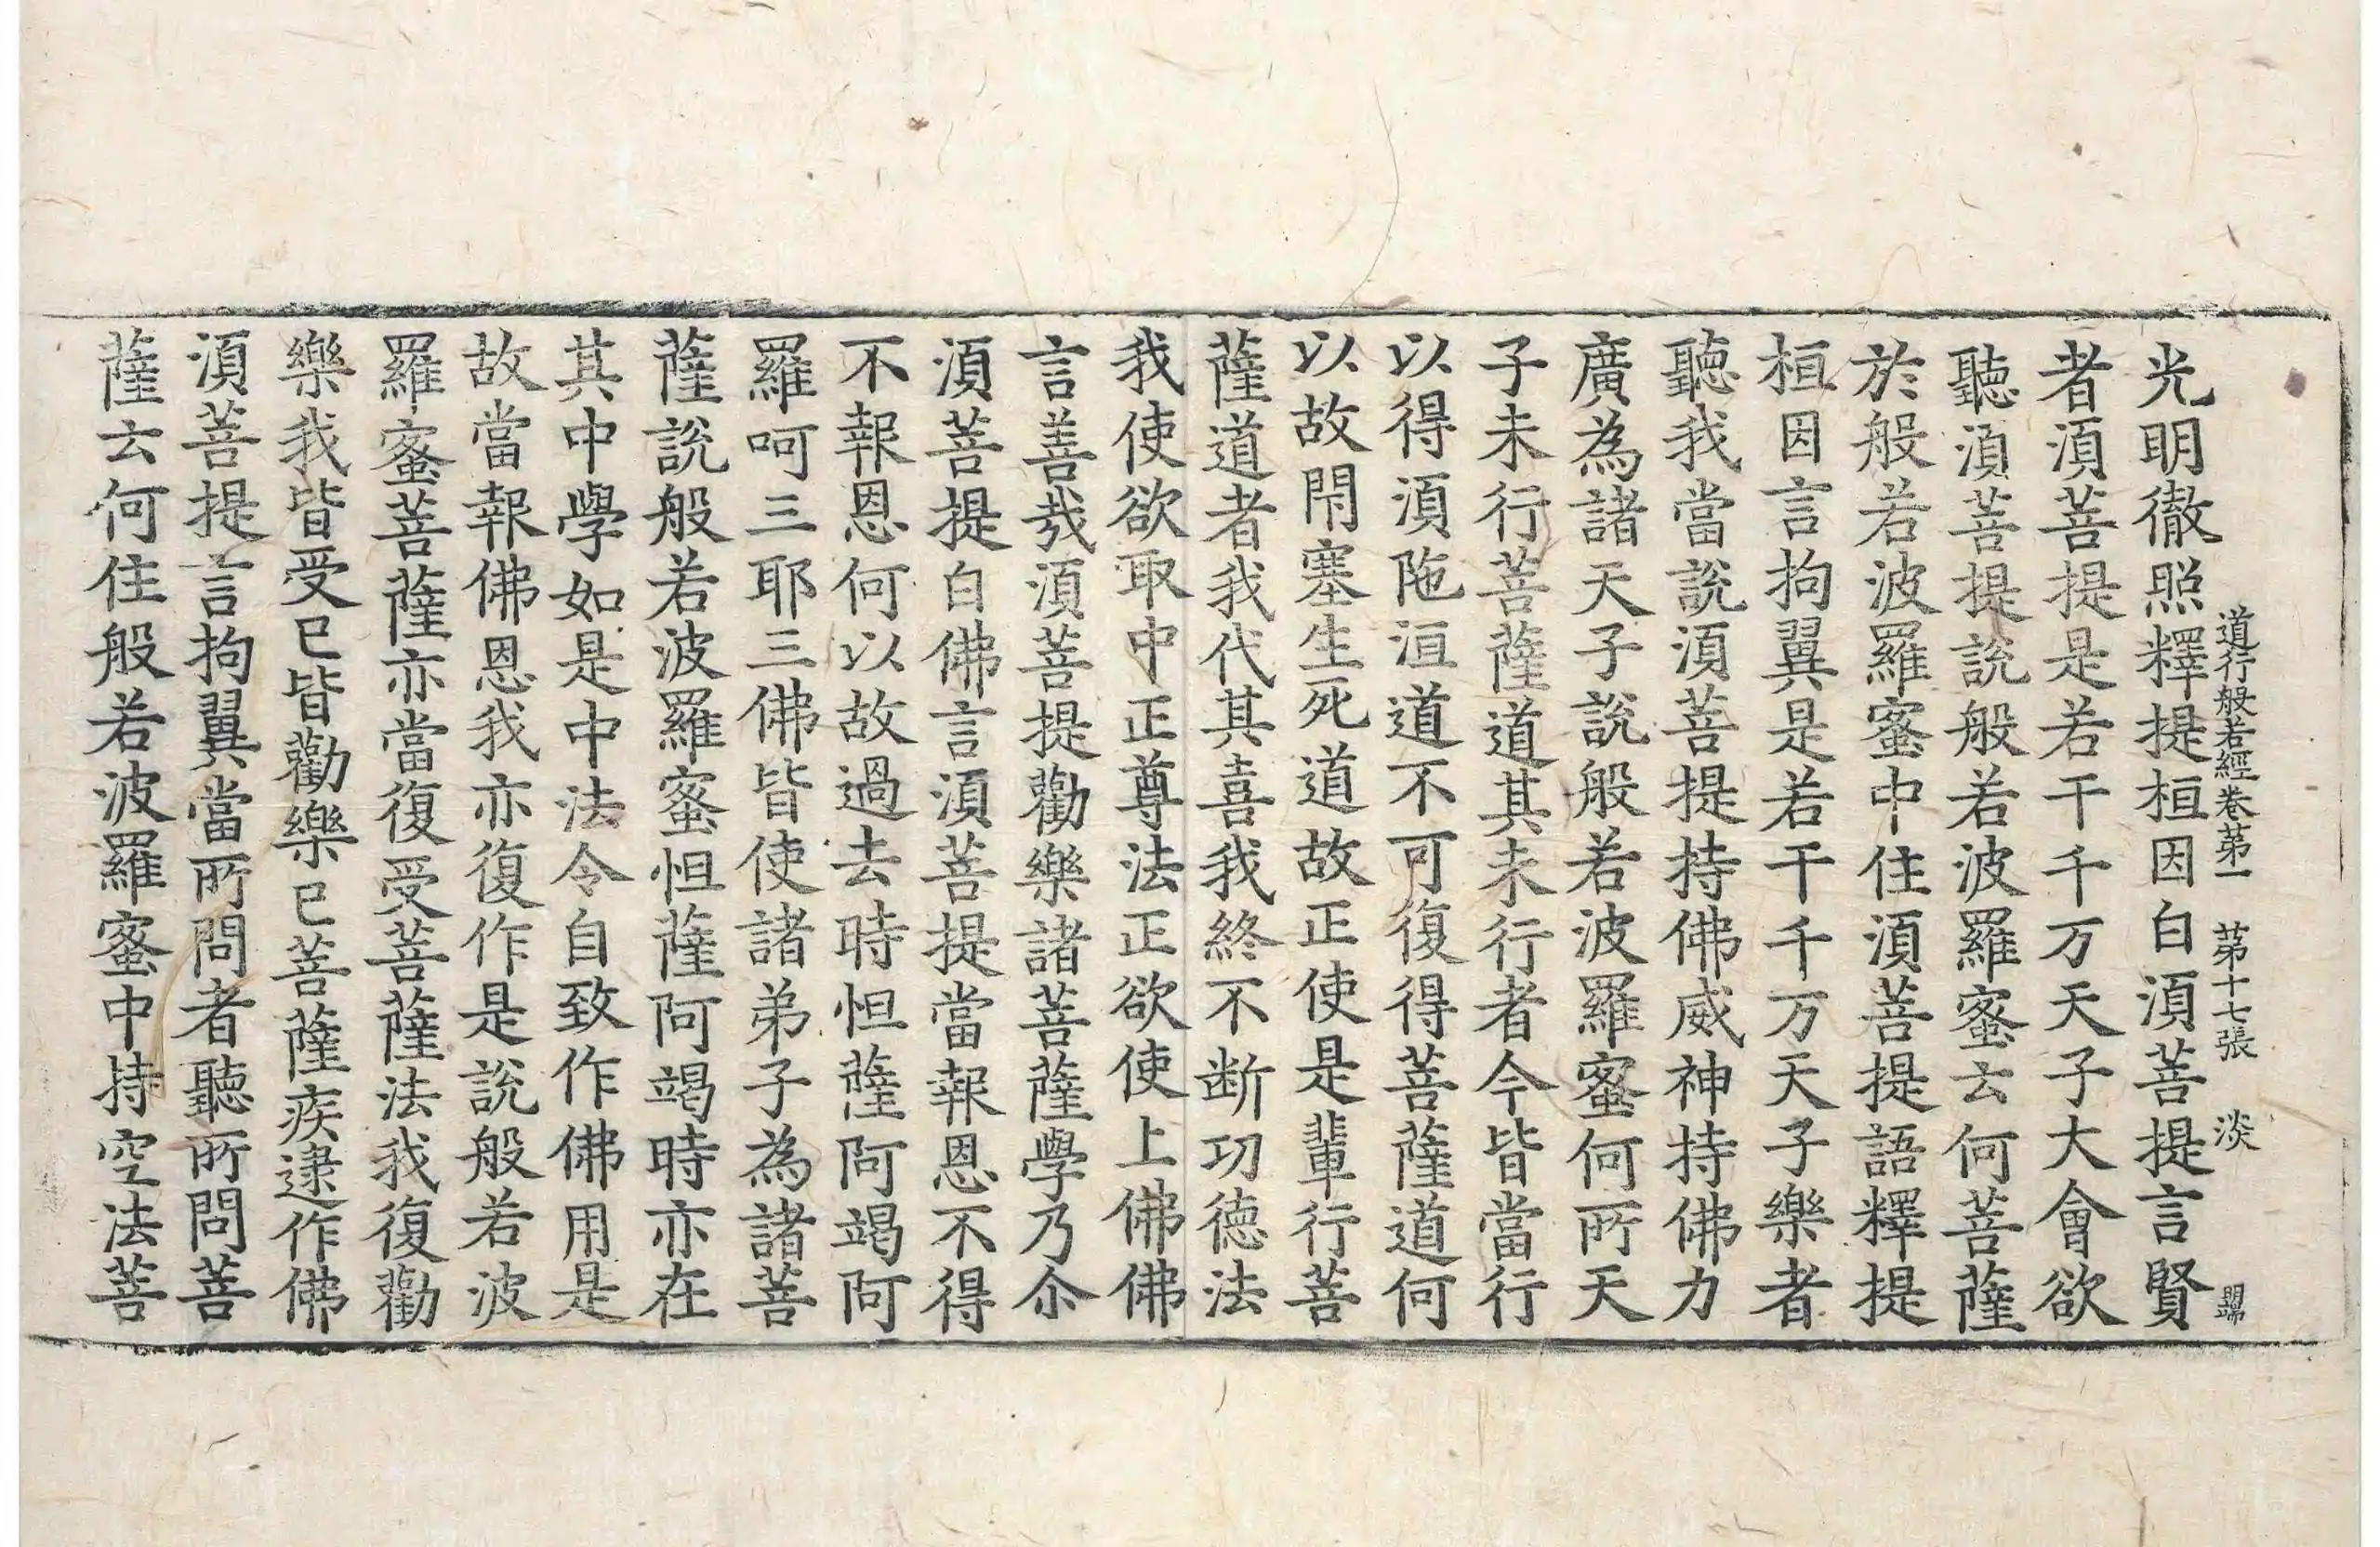 道行般若經卷第一 第十七張 淡
光明徹照釋提桓因白須菩提言賢
者須菩提是若干千万天子大會欲
聽須菩提說般若波羅蜜云何菩薩
於般若波羅蜜中住須菩提語釋提
桓因言拘翼是若干千万天子樂者
聽我當說須菩提持佛威神持佛力
廣為諸天子說般若波羅蜜何所天
子未行菩薩道其未行者今皆當行
以得須陁洹道不可復得菩薩道何
以故閇塞生死道故正使是輩行菩
薩道者我代其喜我終不断功德法
我使欲取中正尊法正欲使上佛佛
言善㦲須菩提勸樂諸菩薩學乃尒
須菩提白佛言須菩提當報恩不得
不報恩何以故過去時怛薩阿竭阿
羅呵三耶三佛皆使諸弟子為諸菩
薩說般若波羅蜜怛薩阿竭時亦在
其中學如是中法令自致作佛用是
故當報佛恩我亦復作是說般若波
羅蜜菩薩亦當復受菩薩法我復勸
樂我皆受已皆勸樂已菩薩疾逮作佛
須菩提言拘翼當所問者聽所問菩
薩云何住般若波羅蜜中持空法菩